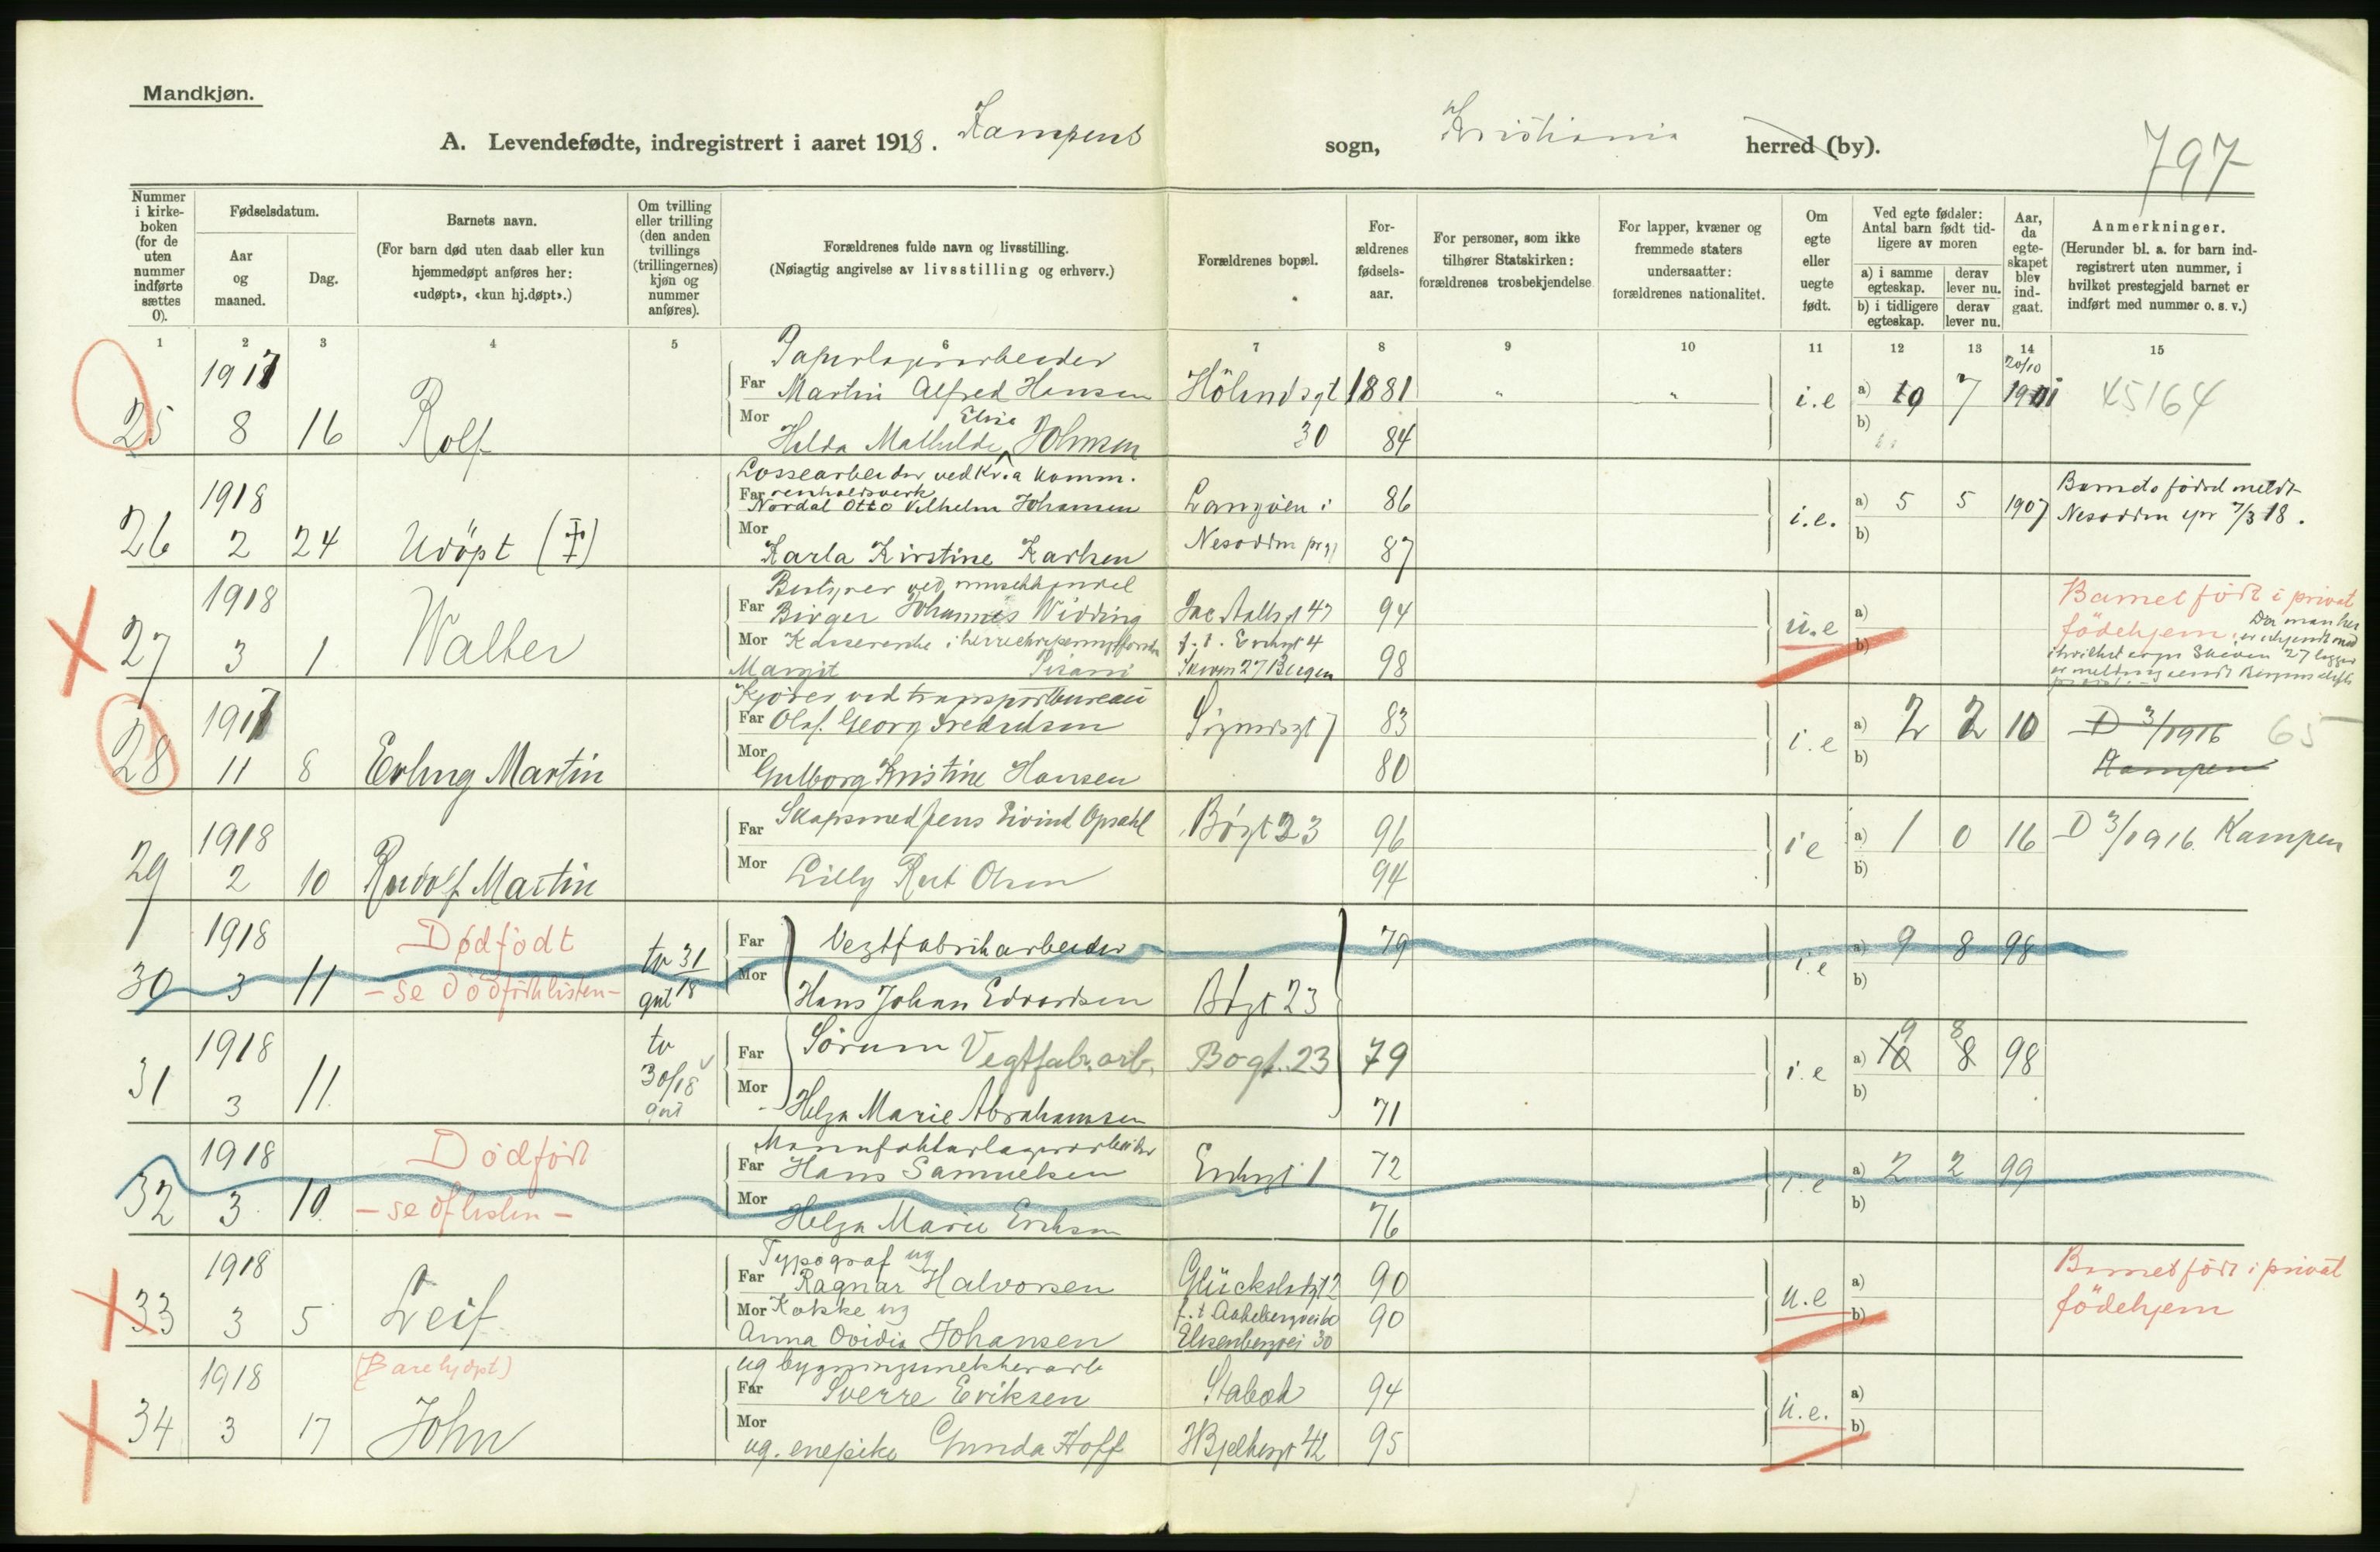 Mandkjøn.
A. Levendefødte, indregistrert i aaret 1918. Kampens sogn, Kristiania herred (by).
797
Nummer i kirkeboken (for de uten nummer indførte sættes 0).
Fødselsdatum.
Aar og maaned.
Dag.
Barnets navn.
(For barn død uten daab eller kun hjemmedøpt anføres her: «udøpt», «kun hj.døpt».)
Om tvilling eller trilling (den anden tvillings (trillingernes) kjøn og nummer anføres).
Forældrenes fulde navn og livsstilling.
(Nøiagtig angivelse av livsstilling og erhverv.)
Forældrenes bopæl.
Forældrenes fødselsaar.
For personer, som ikke tilhører Statskirken: forældrenes trosbekjendelse
For lapper, kvæner og fremmede staters undersaatter: forældrenes nationalitet.
Om egte eller uegte født.
Ved egte fødsler: Antal barn født tidligere av moren
a) i samme egteskap.
derav lever nu.
b) i tidligere egteskap.
derav lever nu.
Aar, da egteskapet blev indgaat.
Anmerkninger.
(Herunder bl. a. for barn indregistrert uten nummer, i hvilket prestegjeld barnet er indført med nummer o. s. v.)
1 2 3 4 5 6 7 8 9 10 11 12 13 14 15
25 1917 8 16 Rolf
Papirlagerarbeider
Far Martin Alfred Hansen
Mor Elise
Helda Mathilde Johnsen
Hölandsgt 30
1881
84
" "
i.e a) 9 7 20/10 1901
b)
45164
26 1918 2 24 Udöpt (‡)
Lossearbeider ved Kr.a komm. renholdsverk
Far Nordal Otto Vilhelm Johansen
Mor Karla Kirstine Karlsen
Langöen i
Nesodden prgj
86
87
i.e. a) 5 5 1907
b)
Barnets födsel meldt
Nesodden spr 7/3 18.
27 1918 3 1 Walter
Bestyrer ved musikhandel
Far Birger Johannes Widding
Mor Kassererske i
Margit
Jac Aallsgt 47
f. t. Erichsgt 4
Skiven 27 Bergen
94
98
u.e a)
b)
Barnet födt i privat
födehjem.
28 1917 11 8 Erling Martin
Kjörer ved transportbureau
Far Olaf Georg Fredriksen
Mor Gulborg Kristine Hansen
Sigurdsgt 7
83
80
i.e a) 2 2 10
b)
D 3/1916
Kampen
65
29 1918 2 10 Rudolf Martin
Far Skapsmed Jens Eivind Opsahl
Mor Lilly Rut Olsen
Bögt 23
96
94
i e a) 1 0 16
b)
D 3/1916. Kampen
30 1918 3 11 Dødfødt
- se dödfödtlisten -
tv 31/18 gut
Far Vegtfabrikarbeider
Mor Hans Johan Edvardsen
Bögt 23
79
i.e a) 9 8 98
b)
31 1918 3 11
tv 30/18 gut
Far Sörum Vegtfab.arb.
Mor Helga Marie Abrahamsen
Bøgt. 23
79
71
i.e a) 10 9 8 8 98
b)
32 1918 3 10 Dödfödt
- se df listen -
Manufakturlagerarbeider
Far Hans Samuelsen
Mor Helga Marie Eriksen
Erichsgt 1
72
76
i.e a) 2 2 99
b)
33 1918 3 5 Leif
Typograf ug
Far Ragnar Halvorsen
Mor Kokke ug
Anna Ovidia Johansen
Glückstadgt 2
f. t Aakebergvei 60
Eisenbergvei 30
90
90
u.e a)
b)
Barnet födt i privat
födehjem
34 1918 3 17 (Bare hjdøpt)
John
ug bygningsmekkerarb
Far Sverre Eriksen
Mor ug. enepike Gunda Hoff
Stabæk
HBjelkesgt 42
94
95
u.e. a)
b)